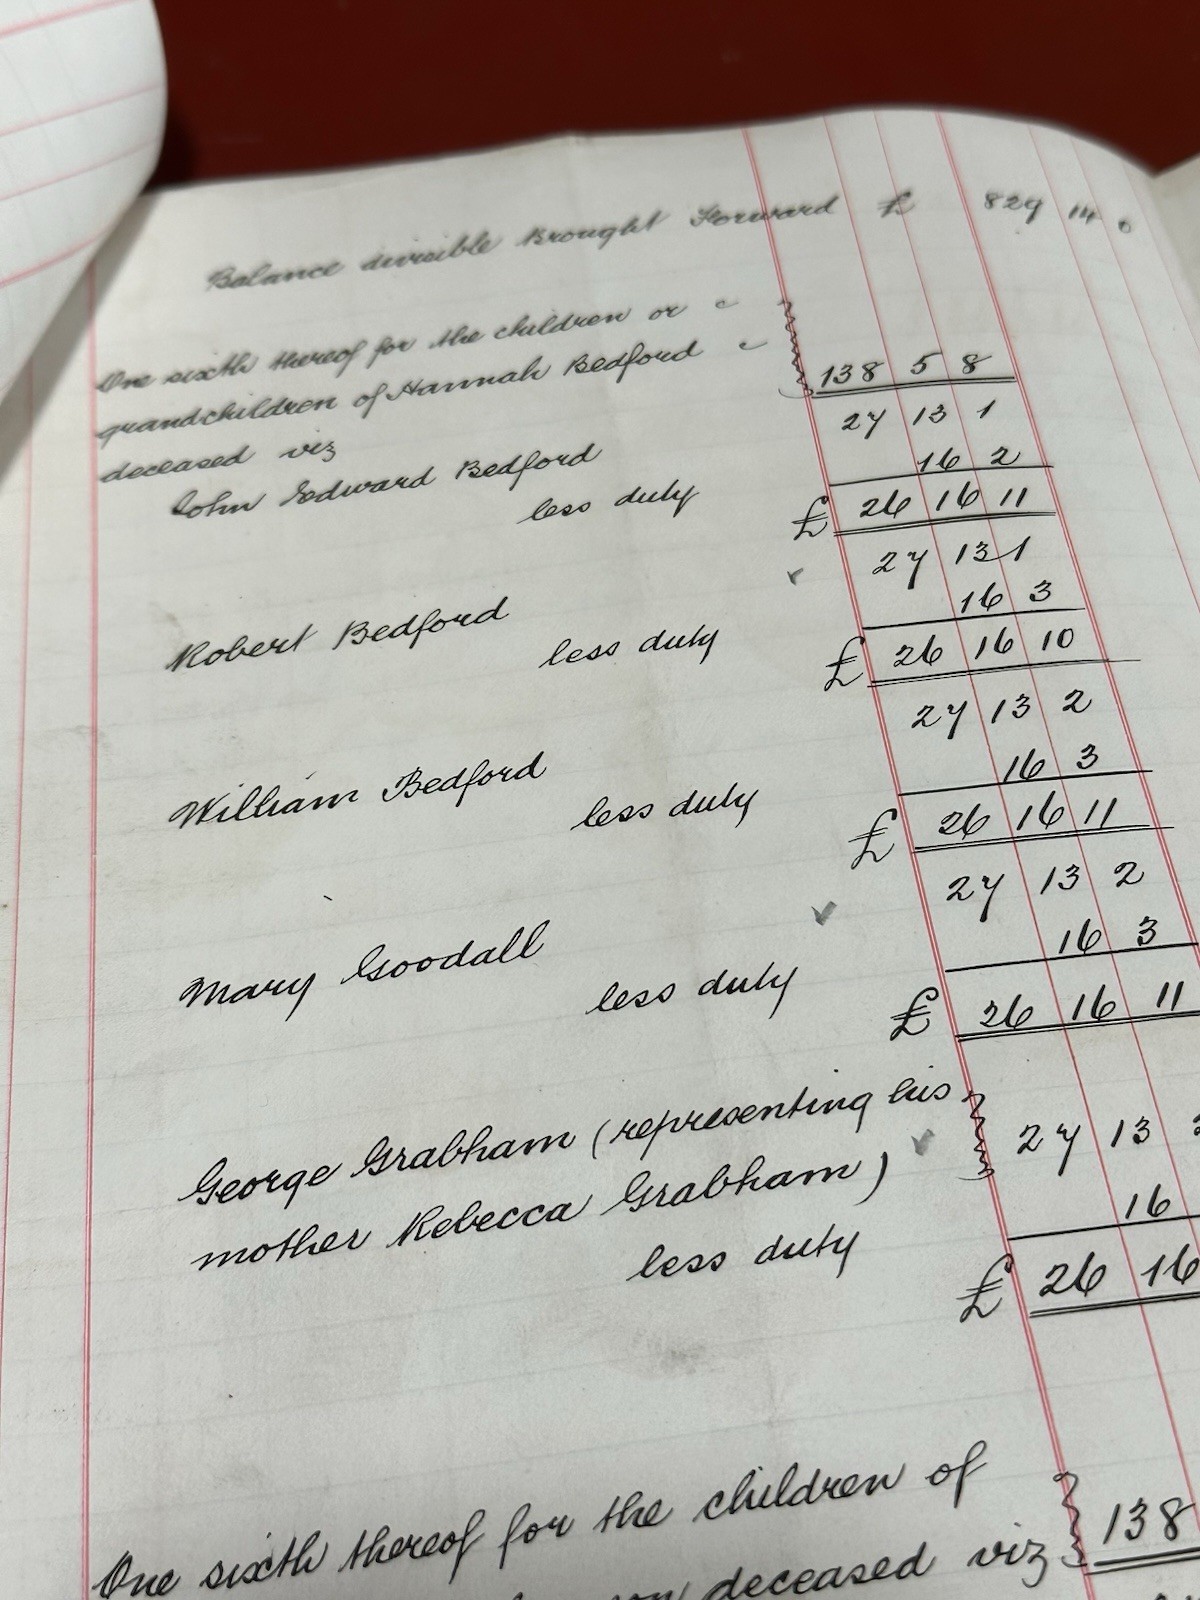 Balance divisible Brought Forward £ 829 14 0
One sixth thereof for the children or
grandchildren of Hannah Bedford 138 5 8
deceased viz
John Edward Bedford 27 13 1
less duty 16 2
£ 26 16 11
Robert Bedford 27 13 1
less duty 16 3
£ 26 16 10
William Bedford 27 13 2
less duty 16 3
£ 26 16 11
Mary Goodall 27 13 2
less duty 16 3
£ 26 16 11
George Grabham (representing his 27 13
mother Rebecca Grabham)
less duty 16
£ 26 16
One sixth thereof for the children of
deceased viz 138